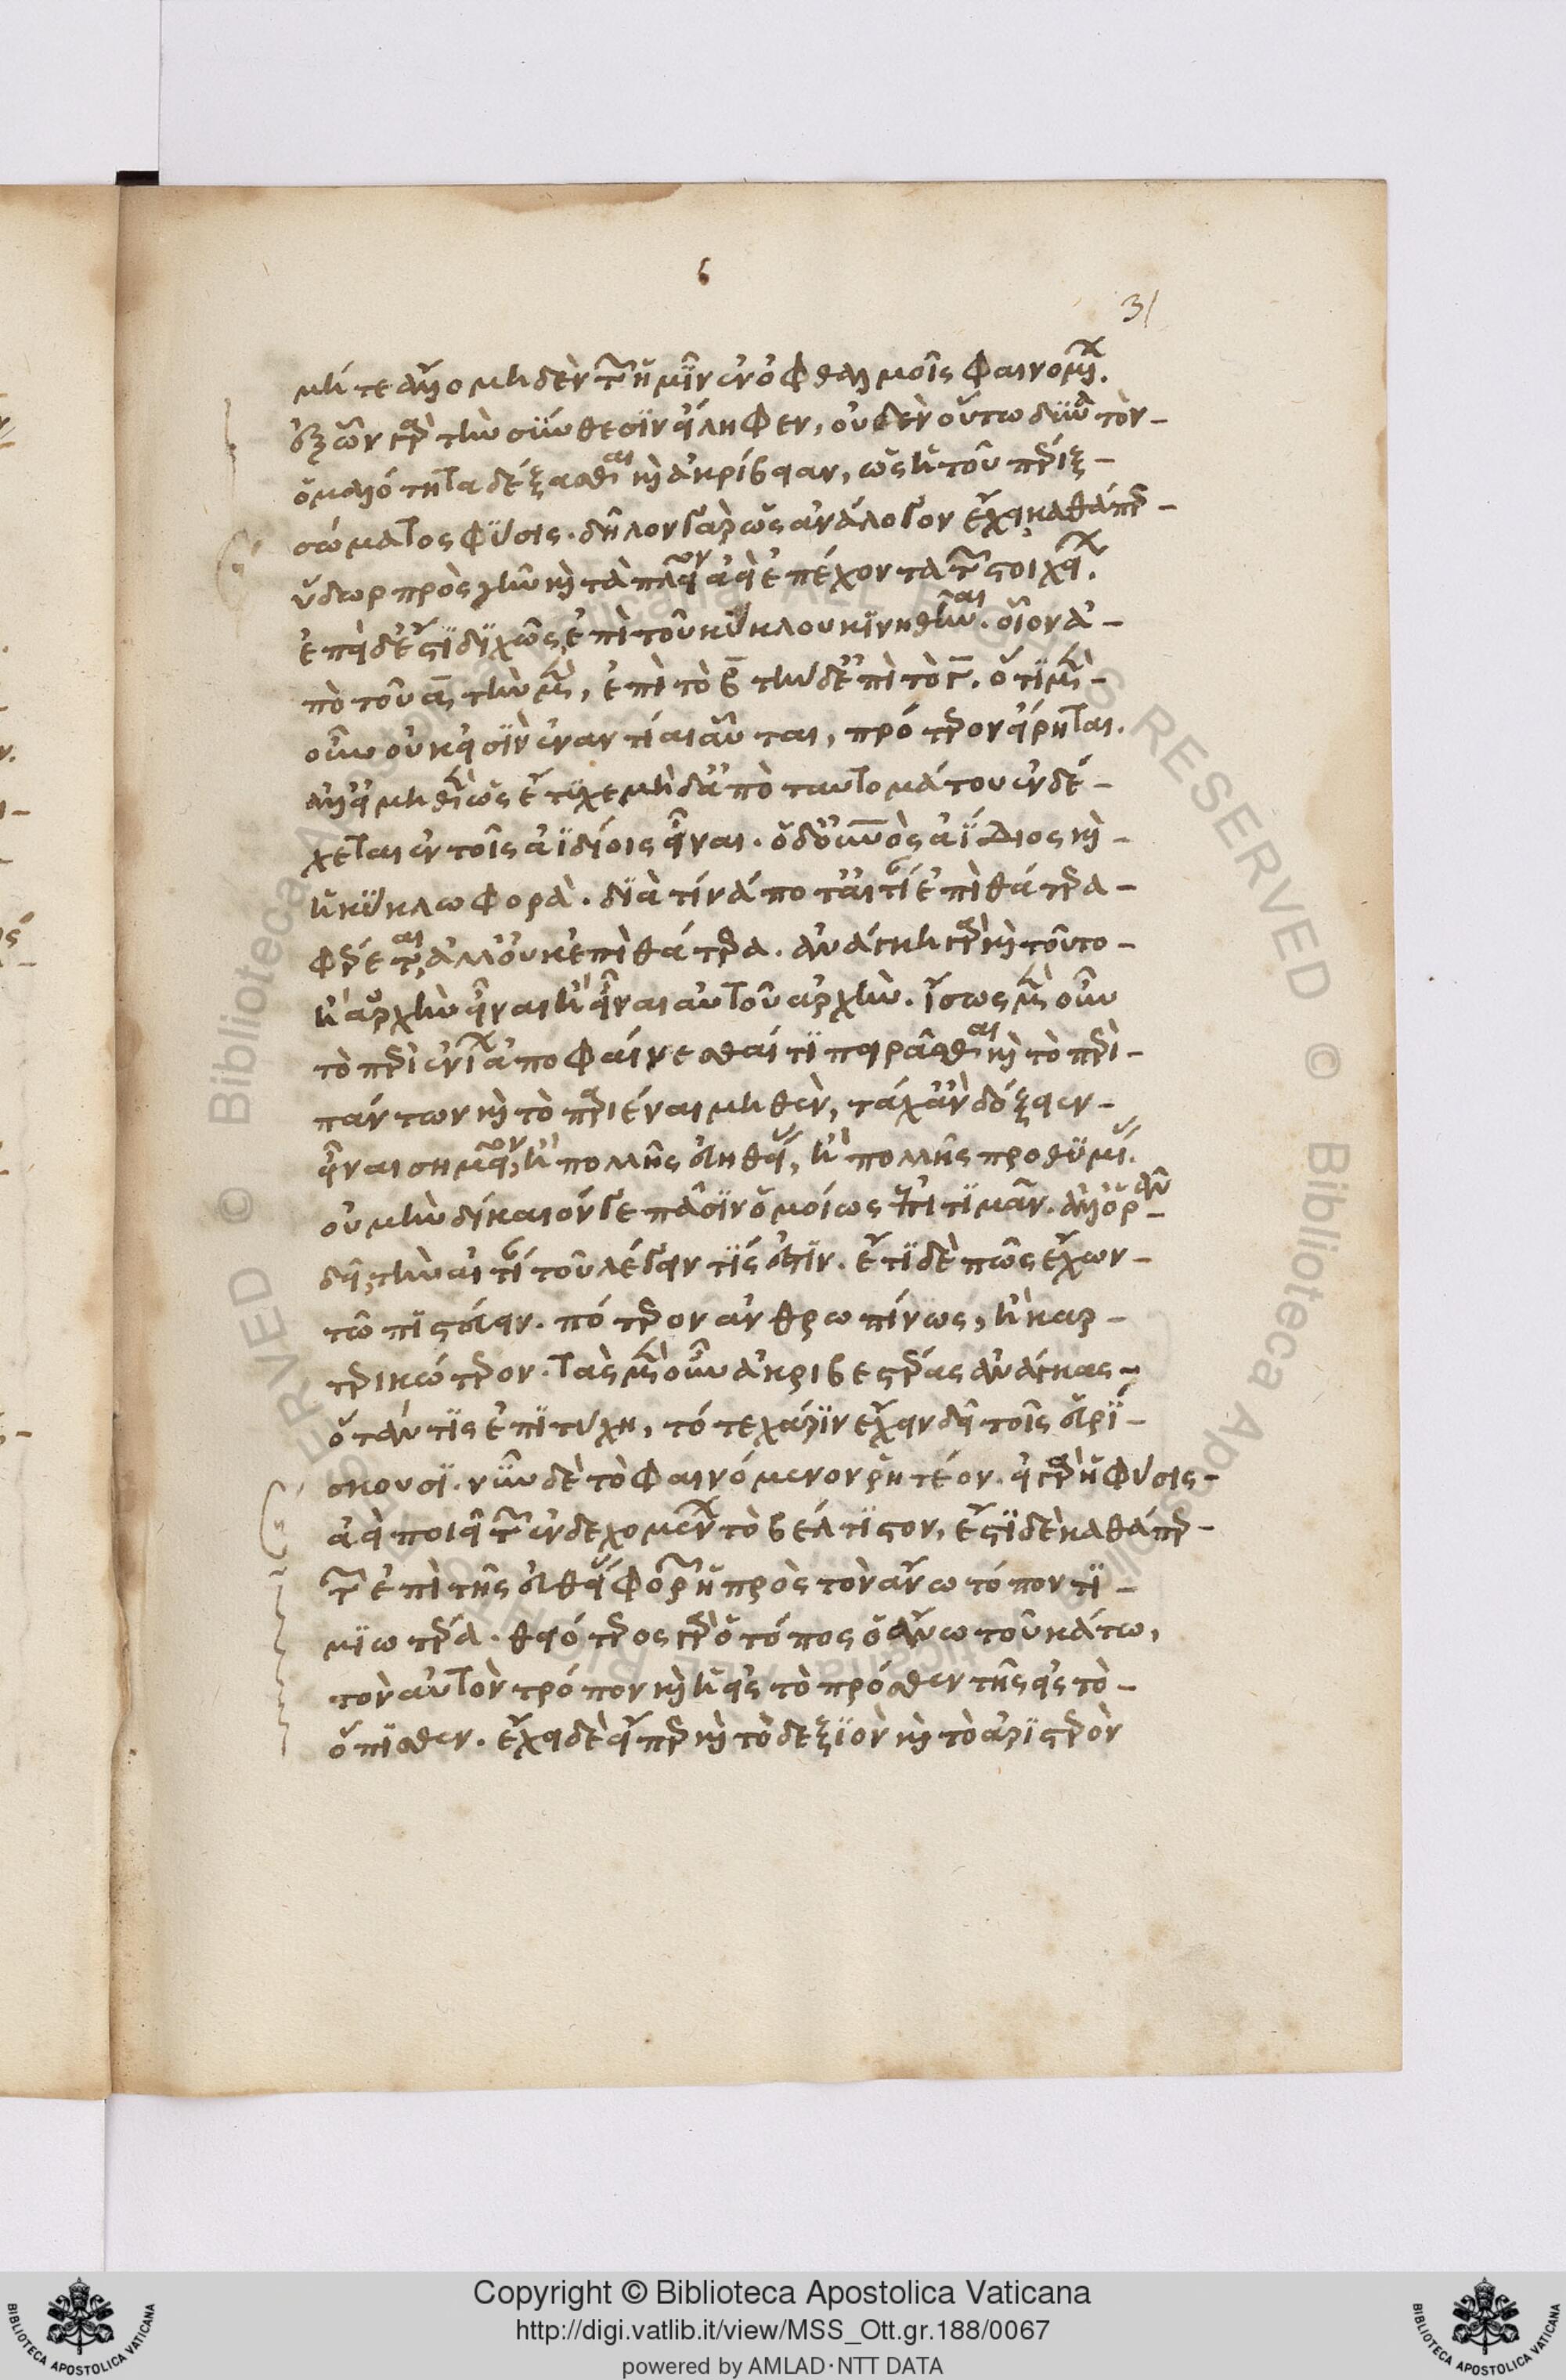 6
31
μήτε ἄλλο μηδὲν τῶν ἡμῖν ἐν ὀφθαλμοῖς φαινομένων.
ἐξ ὧν γὰρ τὴν σύνθεσιν εἴληφεν, οὐδὲν οὕτω δυνατὸν
ὁμαλότητα δέξασθαι καὶ ἀκρίβειαν, ὡς ἡ τοῦ πέριξ
σώματος φύσις. δῆλον γὰρ ὡς ἀνάλογον ἔχει, καθάπερ
ὕδωρ πρὸς γῆν καὶ τὰ πλεῖον ἀεὶ ἐπέχοντα τῶν στοιχείων.
ἐπεὶ δ' ἔστι διχῶς ἐπὶ τοῦ κύκλου κινηθῆναι. οἷον ἀ-
πὸ τοῦ α τὴν μὲν, ἐπὶ τὸ β τὴν δ' ἐπὶ τὸ γ. ὅτι μὲν
οὖν οὐκ εἰσὶν ἐναντίαι αὗται, πρότερον εἴρηται.
ἀλλ' εἰ μηθὲν ὡς ἔτυχε μηδ' ἀπὸ ταυτομάτου ἐνδέ-
χεται ἐν τοῖς ἀϊδίοις εἶναι. ὁ δ' οὐρανὸς ἀΐδιος καὶ
ἡ κύκλω φορά. διὰ τίνά ποτ' αἰτίαν ἐπὶ θάτερα
φέρεται, ἀλλ' οὐκ ἐπὶ θάτερα. ἀνάγκη γὰρ καὶ τοῦτο
ἢ ἀρχὴν εἶναι ἢ εἶναι αὐτοῦ ἀρχήν. ἴσως μὲν οὖν
τὸ περὶ ἐνίων ἀποφαίνεσθαί τι πειρᾶσθαι καὶ τὸ περὶ
πάντων καὶ τὸ παριέναι μηθὲν, τάχ' ἂν δόξειεν
εἶναι σημεῖον, ἢ πολλῆς εὐηθείας, ἢ πολλῆς προθυμίας.
οὐ μὴν δίκαιόν γε πᾶσιν ὁμοίως ἐπιτιμᾶν. ἀλλ' ὁρᾶν
δεῖ, τὴν αἰτίαν τοῦ λέγειν τίς ἐστιν. ἔτι δὲ πῶς ἔχων
τῶ πιστεύειν. πότερον ἀνθρωπίνως, ἢ καρ-
τερικώτερον. τὰς μὲν οὖν ἀκριβεστέρας ἀνάγκας
ὅταν τις ἐπιτύχη, τότε χάριν ἔχειν δεῖ τοῖς εὑρί-
σκουσι. νῦν δὲ τὸ φαινόμενον ῥητέον. εἰ γὰρ ἡ φύσις
ἀεὶ ποιεῖ τῶν ἐνδεχομένων τὸ βέλτιστον, ἔστι δὲ καθάπερ
τῶν ἐπὶ τῆς εὐθείας φορῶν ἡ πρὸς τὸν ἄνω τόπον τι-
μιωτέρα. θειότερος γὰρ ὁ τόπος ὁ ἄνω τοῦ κάτω,
τὸν αὐτὸν τρόπον καὶ ἡ εἰς τὸ πρόσθεν τῆς εἰς τὸ
ὄπισθεν. ἔχει δὲ εἴπερ καὶ τὸ δεξιὸν καὶ τὸ ἀριστερὸν
Copyright © Biblioteca Apostolica Vaticana
http://digi.vatlib.it/view/MSS_Ott.gr.188/0067
powered by AMLAD·NTT DATA